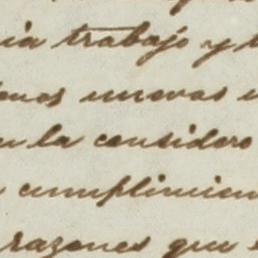 ia trabajo y t
enos nuevas
la considero
cumplimien
razones que